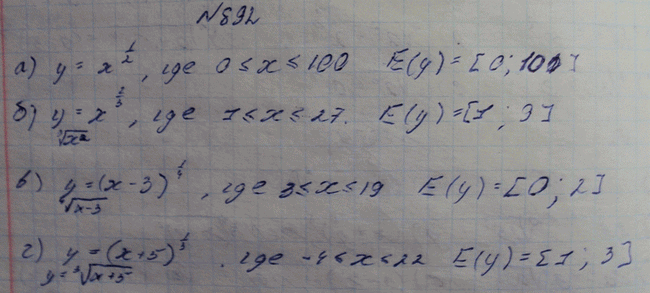 №892
а) y = x^(1/2), где 0 ≤ x ≤ 100 E(y) = [0; 10]
б) y = x^(1/3), где 1 ≤ x ≤ 27. E(y) = [1; 3]
∛x
в) y = (x-3)^(1/4), где 3 ≤ x ≤ 19 E(y) = [0; 2]
∜x-3
г) y = (x+5)^(1/3), где -4 ≤ x ≤ 22 E(y) = [1; 3]
y = ∛x+5